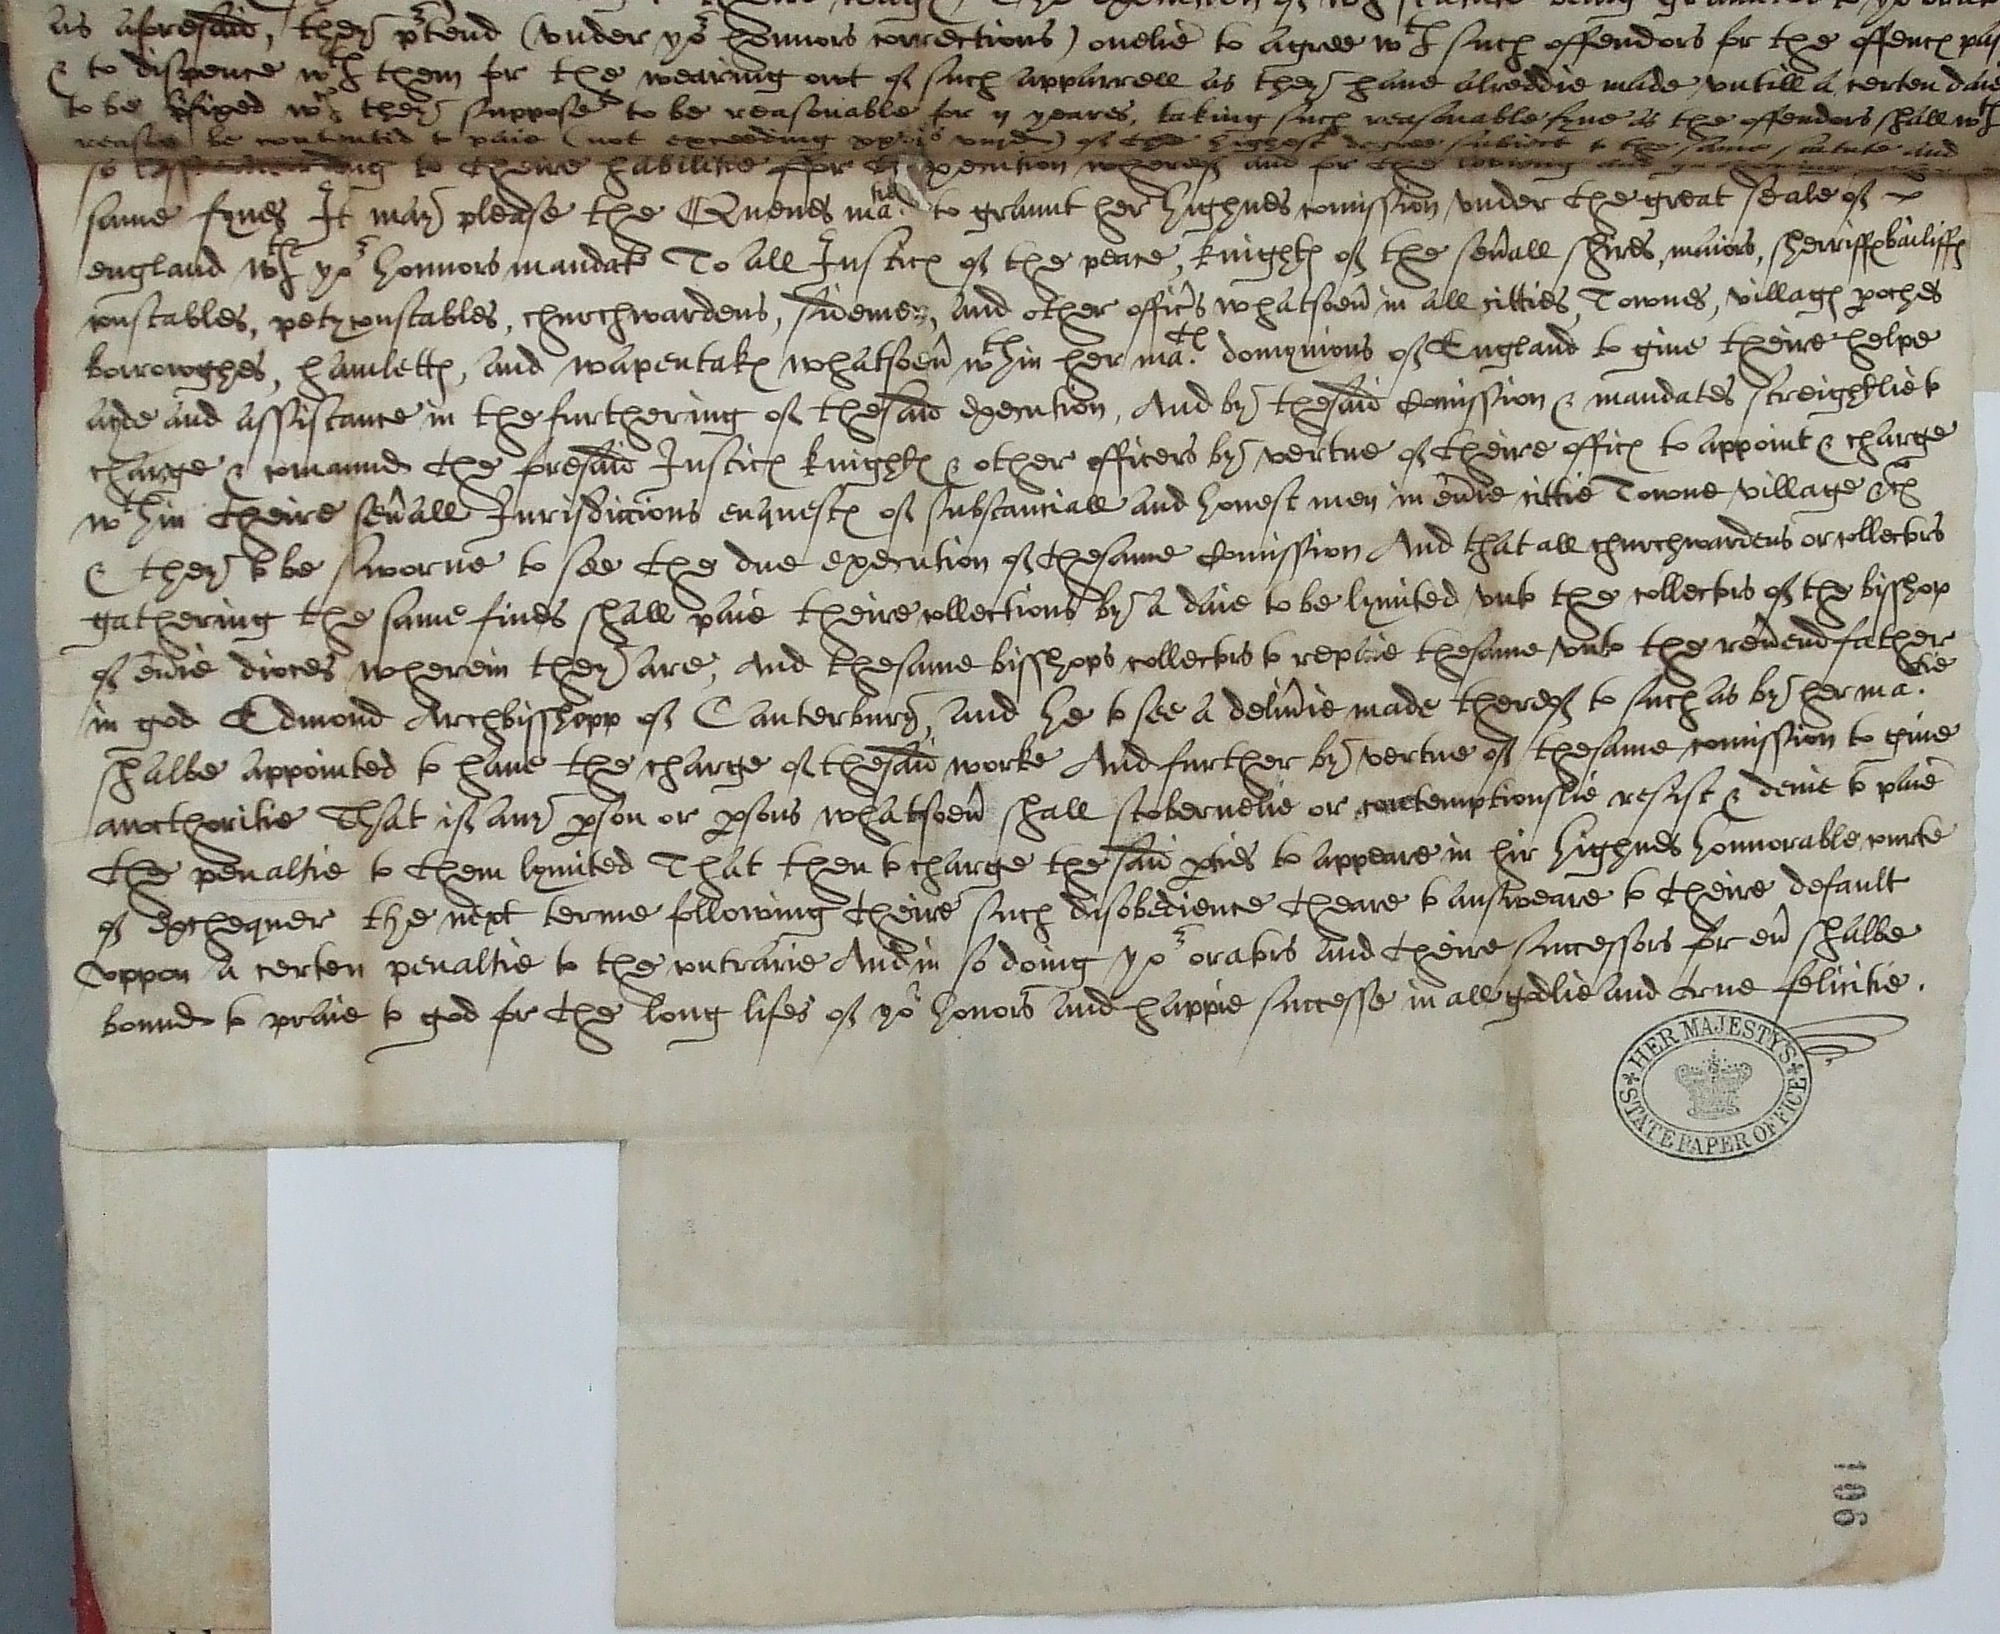 as aforesaid, they p̱tend (vnder yor honnors corrections) onelie to agree wth such offendors for the offenc past
& to dispence wth them for the wearing owt of such apparrell as they haue alreddie made vntill a certen daie
to be wch they suppose to be reasonable for ij yeares, taking such reasonable fyne as the offendors shall wth
reason be contentid to paie (not exceeding ) of the highest degree subiect to the same statute and
so to theire habilitie ffor execution whereof and for the
same fynes It may please the Quenes matie to graunt her highnes comission vnder the great seale of
england wth yor honnors mandate To all Justices of the peace, knightes of the seuall shires, maiors, sherriffes bailiffes
constables, petyconstables, churchwardens, sidemen, and other offics whatsoeu in all citties, Townes, villages pishes
borrowghes, hamlettes, and wapentakes whatsoeu wthin her maties domynions of England to giue theire helpe
ayde and assistance in the furthering of thesaid execution, And by thesaid Comission & mandates streightlie to
charge & comaund the foresaid Justices knightes & other officers by vertue of theire offices to appoint & charge
wthin theire seuall Jurisdiccions enquestes of substanciall and honest men in euie cittie Towne village &c
& they to be sworne to see the due execution of thesame Comission And that all churchwardens or collectors
gathering the same fines shall paie theire collections by a daie to be lymited vnto the collectors of the bisshop
of euie dioces wherein they are, And thesame bisshops collectors to repaie thesame vnto the reuend father
in god Edmond Archbisshopp of Canterbury, and he to see a deliuie made thereof to such as by her matie
shalbe appointed to haue the charge of thesaid worke And further by vertue of thesame comission to giue
aucthoritie That if any pson or psons whatsoeu shall stobernelie or contemptiouslie resist & denie to paie
the penaltie to them lymited That then to charge thesaid pties to appeare in hir highnes honnorable courte
of exchequer the next terme following theire such disobedience theare to answeare to theire default
vppon a certen penaltie to the contrarie And in so doing yor orators and theire successors for eu shalbe
bound to praie to god for the long lifes of yor honors and happie successe in all godlie and true felicitie.
HER MAJESTY'S
STATE PAPER OFFICE
106